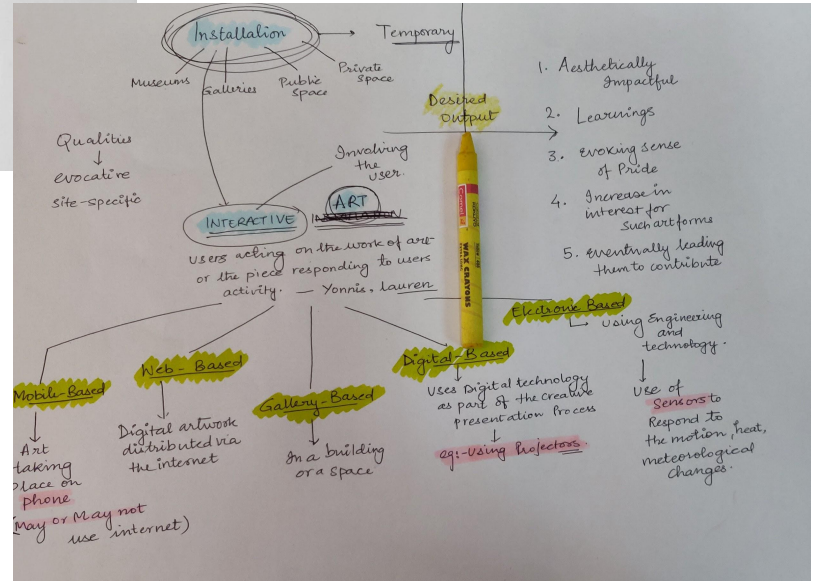 Installation
Temporary
Museums
Galleries
Public
Space
Private
Space
Qualities
evocative
site-specific
Involving
the
user.
INTERACTIVE
ART
users acting on the work of art
or the piece responding to users
activity. — Yonnis, lauren
Desired
Output
1. Aesthetically
Impactful
2. Learnings
3. evoking sense
of Pride
4. Increase in
interest for
Such art forms
5. eventually leading
them to contribute
WAX CRAYONS
Mobile-Based
Art
taking
place on
phone
(May or May not
use internet)
Web-Based
Digital artwork
distributed via
the internet
Gallery-Based
In a building
or a space
Digital-Based
Uses Digital technology
as part of the creative
presentation Process
eg:-Using Projectors.
Electronic Based
Using Engineering
and
technology.
Use of
Sensors to
Respond to
the motion, heat,
meteorological
changes.